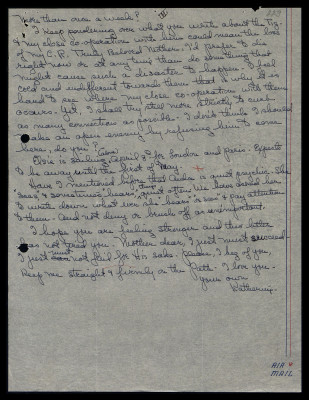 more than once a week?
I keep pondering over what you write about the
& my close co-operation with him could mean the loss
of my C. R. Dear, Beloved Mother, I'd prefer to die
right now or at any time than do something that
might cause such a disaster to happen. I feel
cold and indifferent towards them that is why it is
hard to see where my close co-operation with them
occurs. Yet I shall try still more strictly to curb
as many connections as possible. I don't think I should
make an open enemy by refusing him to come
here, do you?
Elsie is sailing April for London and Paris. Expects
to be away until the first of May.
Have I mentioned before that is quite psychic. She
"sees" & sometimes "hears" quite often. We have asked her
to write down what ever she "hears" & "sees" & pay attention
to them. And not deny or brush off as unimportant.
I hope you are feeling stronger and this letter
has not tired you. Mother dear, I just must succeed
I just must not fail for His sake. Please, I beg of you,
Keep me straight & firmly on the Path. I love you.
your own
Katherine.
AIR
MAIL